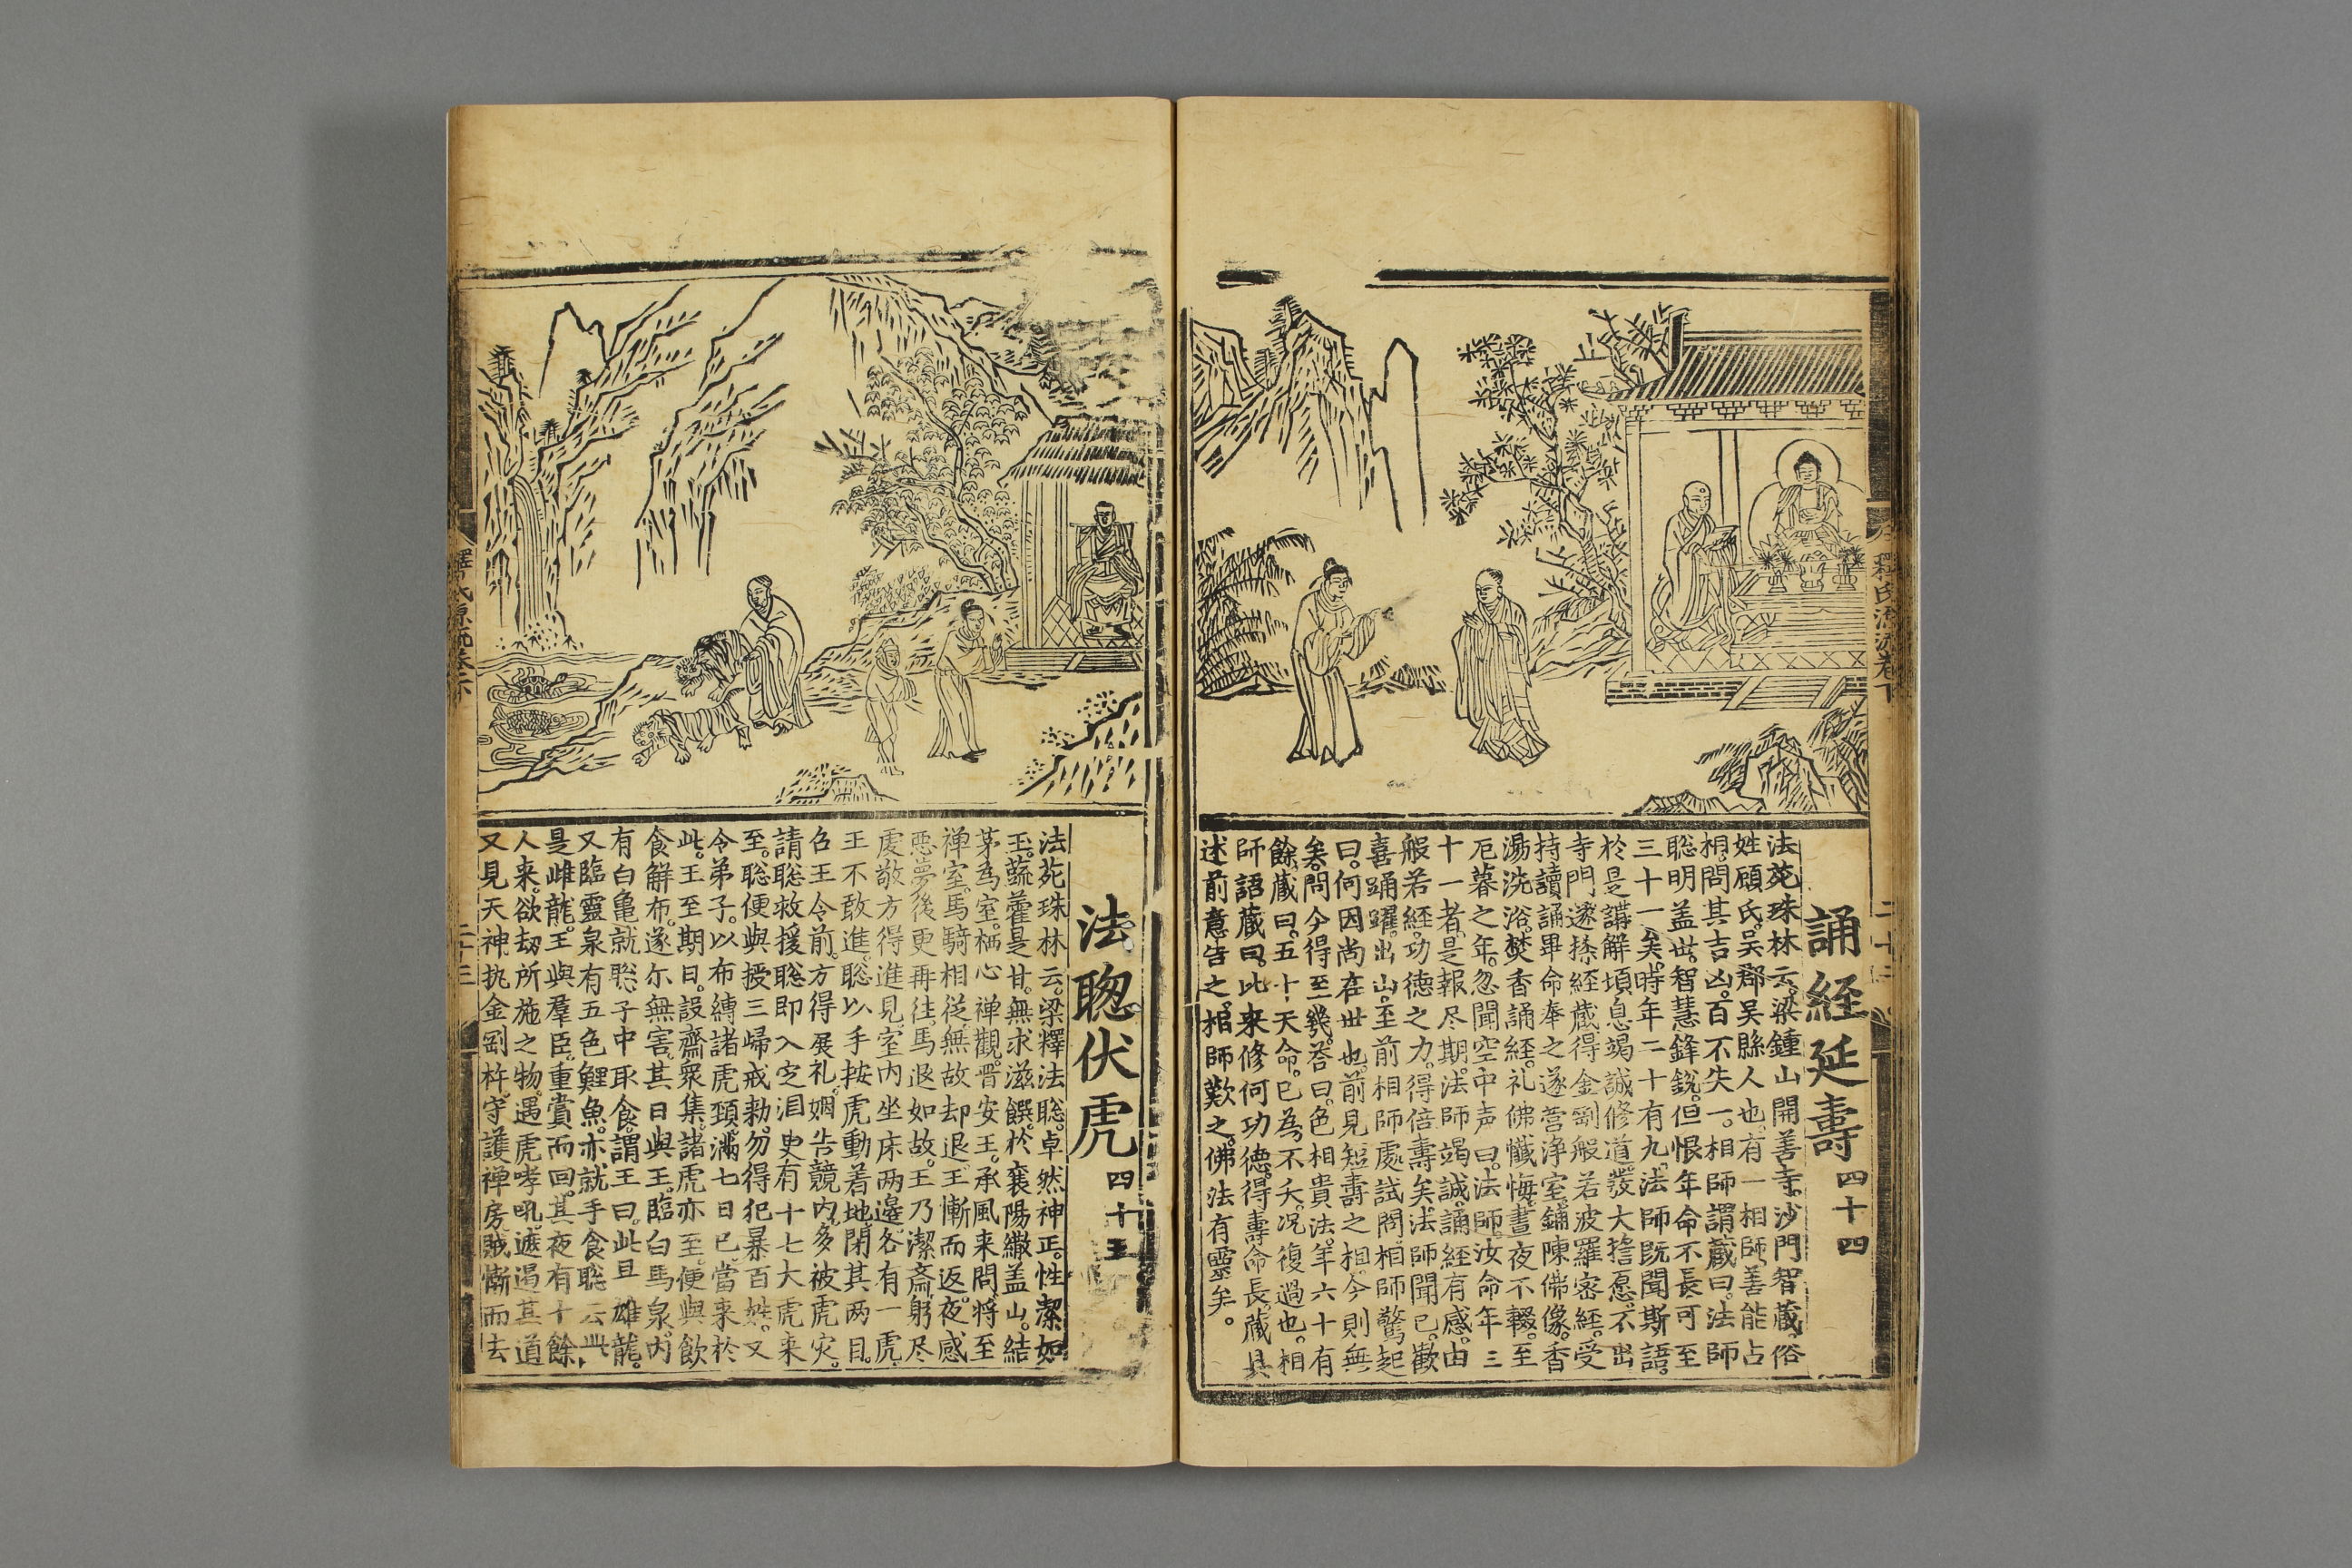 釋氏源流卷下
二十三
誦經延壽四十四
法苑珠林云。梁鍾山開善寺。沙門智蔵。俗
姓顧氏。吴郡吴縣人也。有一相師。善能占
相。問其吉凶。百不失一。相師謂蔵曰。法師
聡明盖世。智慧鋒銳。但恨年命不長。可至
三十一矣。時年二十有九。法師既聞斯語。
於是講解頓息。竭誠修道。發大擔愿。不出
寺門。遂探經蔵。得金剛般若波羅密經。受
持讀誦。畢命奉之。遂営浄室。鋪陳佛像。香
湯洗浴。焚香誦經。礼佛懺悔。晝夜不輟。至
厄暮之年。忽聞空中声曰。法師。汝命年三
十一者。是報尽期。法師竭誠。誦經有感。由
般若經。功德之力。得倍壽矣。法師聞已。歡
喜踊躍。出山。至前相師處。試問。相師驚起
曰。何因尚在世也。前見短壽之相。今則無
矣。問今得至幾。荅曰。色相貴法。年六十有
餘。蔵曰。五十天命。已為不夭。况復過也。相
師語蔵曰。此来修何功德。得壽命長。蔵具
述前意告之。相師歎之。佛法有靈矣。
法聦伏虎四十五
法苑珠林云。梁釋法聡。卓然神正。性潔如
玉。蔬藿是甘。無求滋饌。於襄陽繖盖山。結
茅為室。栖心禅觀。晋安王。承風来問。将至
禅室。馬騎相從。無故却退。王慚而返。夜感
惡夢。後更再往。馬退如故。王乃潔斎。躬尽
虔敬。方得進見。室内坐床两邉。各有一虎。
王不敢進。聡以手按虎動着地。閉其两目。
名王令前。方得展礼。姻告競内。多被虎灾。
請聡救援。聡即入定。洎史有十七大虎来
至。聡便與授三歸戒。勑勿得犯暴百姓。又
令弟子。以布縛諸虎頸。滿七日已。當来於
此。王至期日。設齋衆集。諸虎亦至。便與飲
食解布。遂尓無害。其日與王。臨白馬泉。内
有白亀。就聡子中取食。謂王曰。此且雄龍。
又臨靈泉。有五色鯉魚。亦就手食。聡云。此
是雌龍。王與羣臣。重賞而回。其夜有十餘
人来。欲刼所施之物。遇虎哮吼。遮遏其道
又見天神。执金剛杵。守護禅房。賊慚而去
二十三